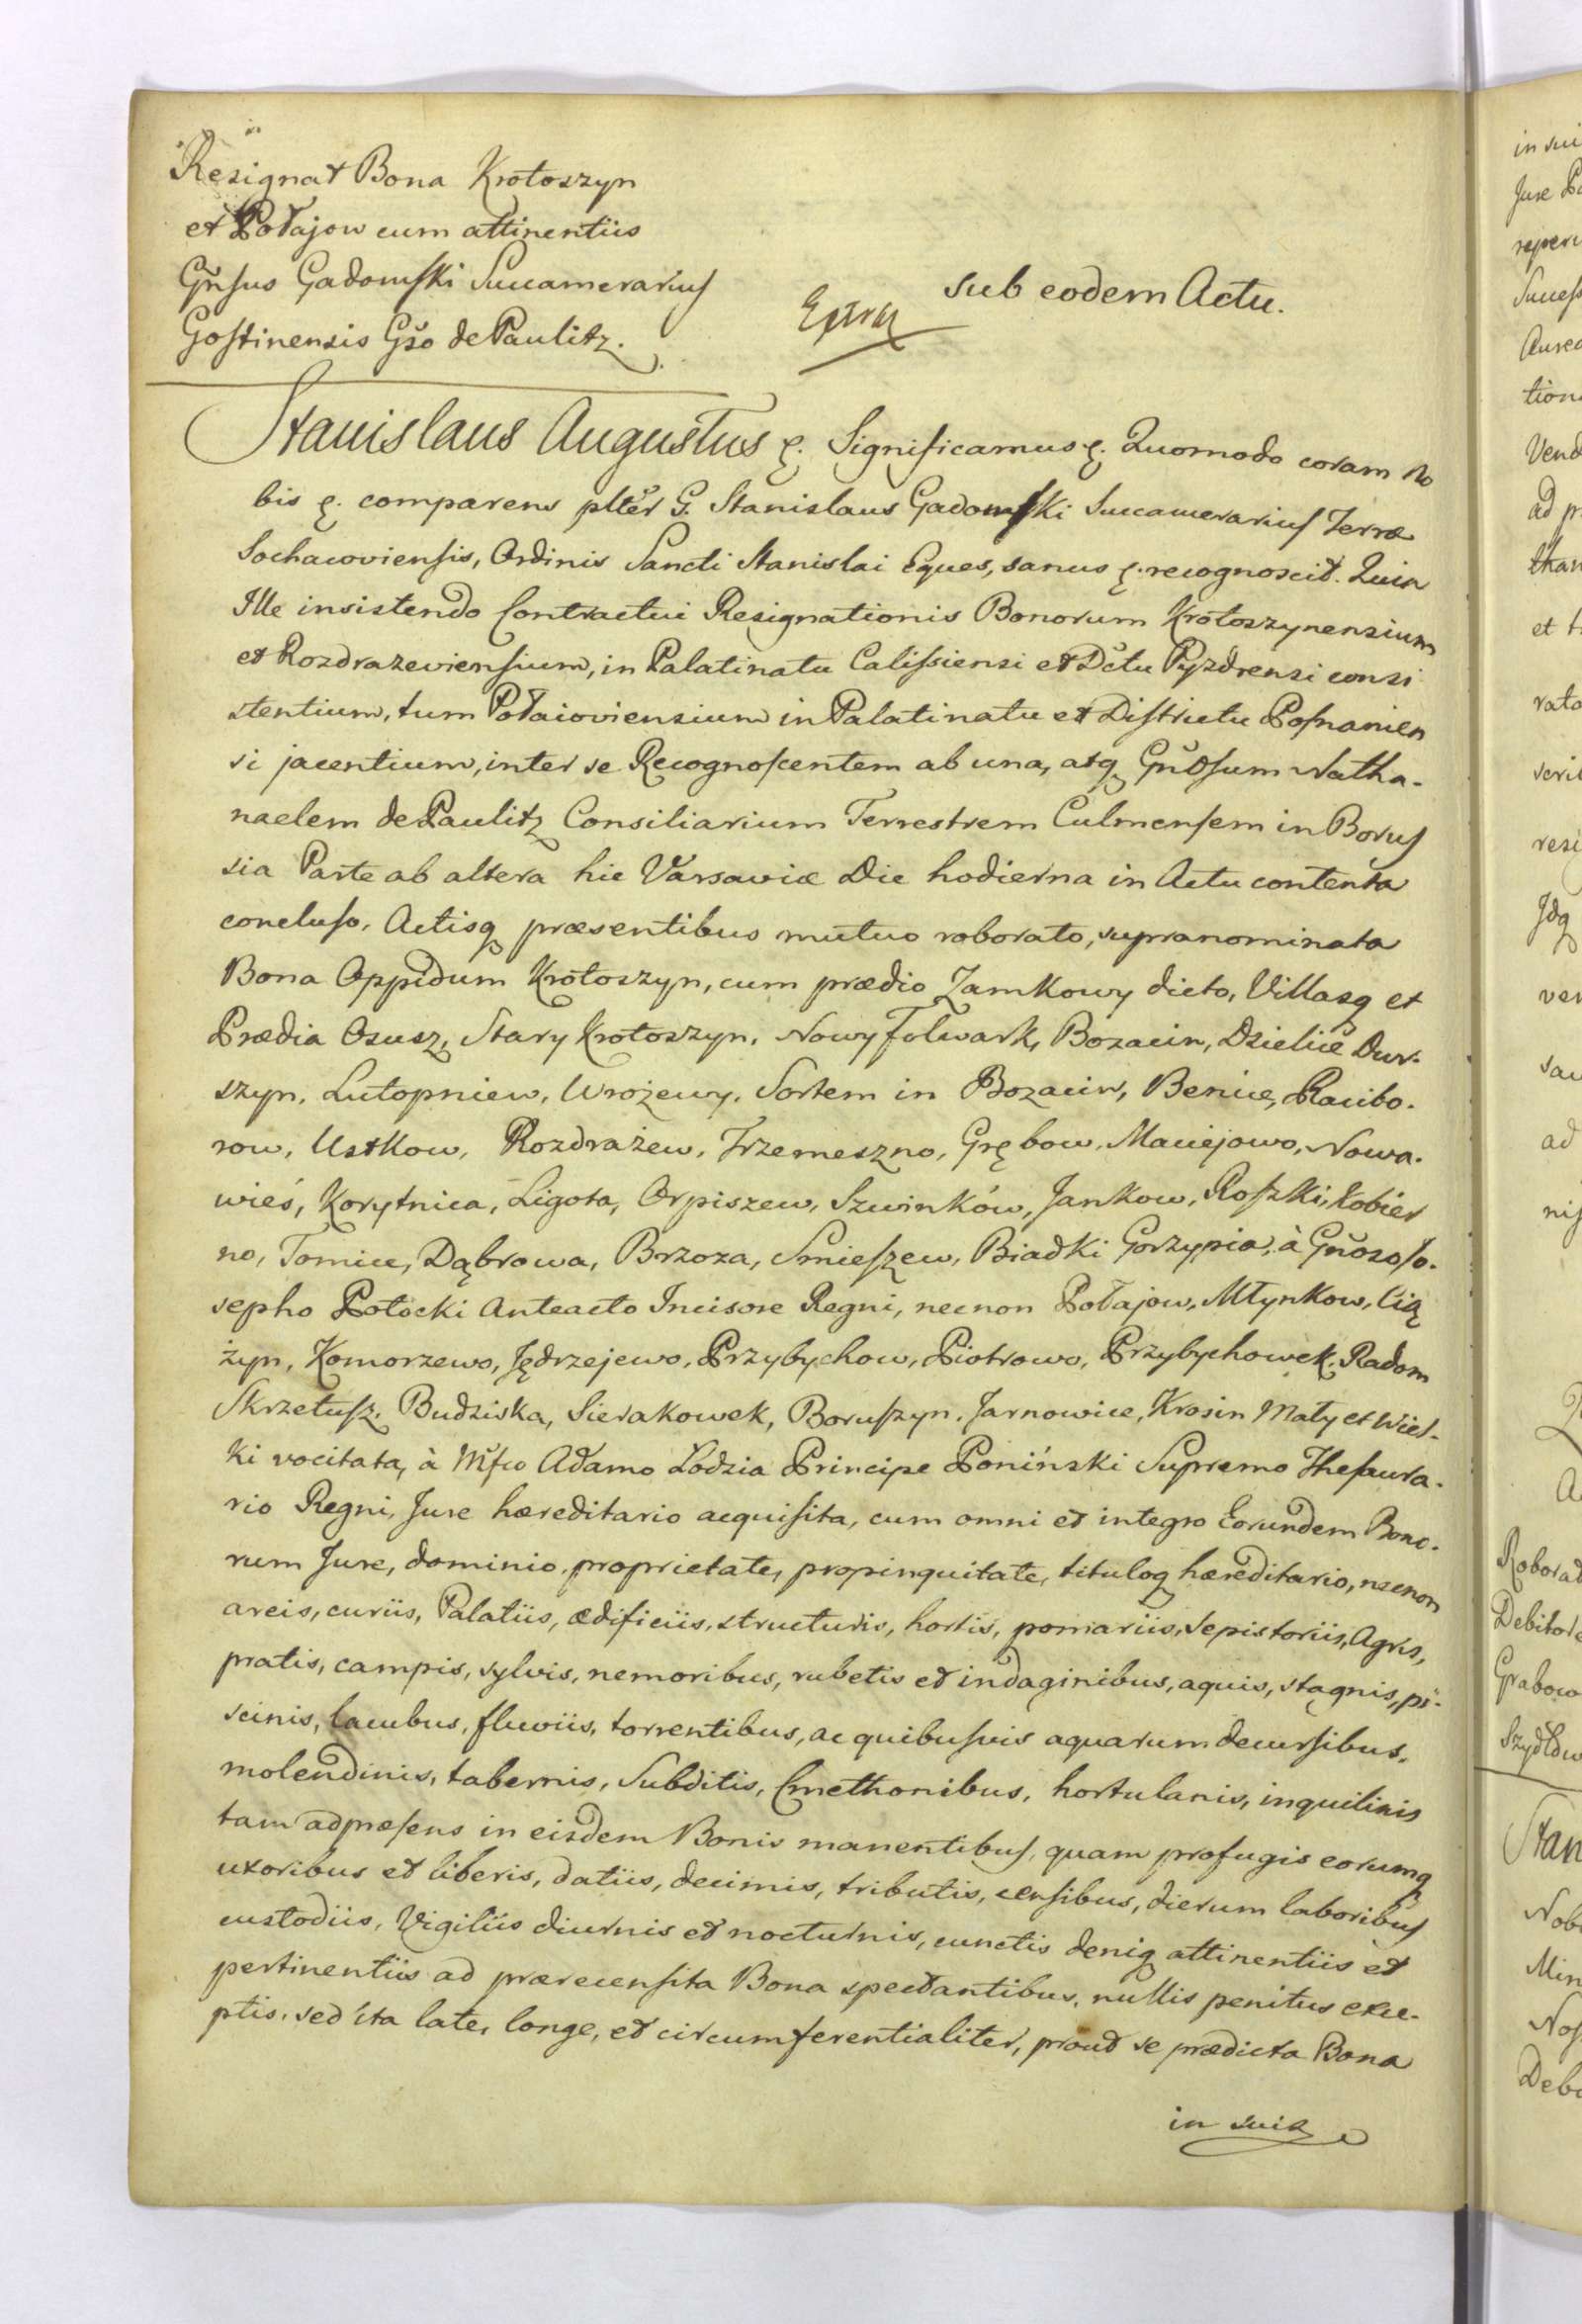 Resignat Bona Krotoszyn
et Połajow cum attinentiis
Gñsus Gadomski Succamerarius
Gostinensis Gso de Paulitz.
sub eodem Actu.
Stanislaus Augustus ę. Significamus ę. Quomodo coram No
bis ę. comparens plter G. Stanislaus Gadomski Succamerarius Terræ
Sochacoviensis, Ordinis Sancti Stanislai Eques, sanus ę. recognoscit. Quia
Ille insistendo Contractui Resignationis Bonorum Krotoszynensium
et Rozdrazeviensium, in Palatinatu Calissiensi et Dctu Pyzdrensi consi
stentium, tum Połaioviensium in Palatinatu et Districtu Posnanien
si jacentium, inter se Recognoscentem ab una, atq Gñosum Natha-
naelem de Paulitz Consiliarium Terrestrem Culmensem in Borus
sia Parte ab altera hic Varsaviæ Die hodierna in Actu contenta
concluso, Actisq præsentibus mutuo roborato, supranominata
Bona Oppidum Krotoszyn, cum prædio Zamkowy dicto, Villasq et
Prædia Osusz, Stary Krotoszyn, Nowy Folwark, Bozacin, Dzielice Dur-
szyn, Lutopniew, Wrożewy, Sortem in Bozacin, Benice, Racibo-
row, Ustkow, Rozdrażew, Trzemeszno, Grębow, Maciejowo, Nowa-
wieś, Korytnica, Ligota, Orpiszew, Szwinków, Jankow, Roszki, Kobier
no, Tomice, Dąbrowa, Brzoza, Smieszew, Biadki Gorzypia, à Gñoso Jo-
sepho Potocki Anteacto Incisore Regni, necnon Połajow, Młynkow, Cią
żyn, Komorzewo, Jędrzejewo, Przybychow, Piotrowo, Przybychowek, Radom
Skrzetusz, Budziska, Sierakowek, Boruszyn, Jarnowice, Krosin Mały et Wiel-
ki vocitata, à Mfco Adamo Lodzia Principe Poniński Supremo Thesaura-
rio Regni, Jure hæreditario acquisita, cum omni et integro Eorundem Bono-
rum Jure, dominio, proprietate, propinquitate, tituloq hæreditario, necnon
areis, curiis, Palatiis, ædificiis, structuris, hortis, pomariis, sepistoriis, Agris,
pratis, campis, sylvis, nemoribus, rubetis et indaginibus, aquis, stagnis, pi-
scinis, lacubus, fluviis, torrentibus, ac quibusvis aquarum decursibus,
molendinis, tabernis, Subditis, Cmethonibus, hortulanis, inquilinis
tam adpræsens in eisdem Bonis manentibus, quam profugis eorumq
uxoribus et liberis, datiis, decimis, tributis, censibus, dierum laboribus
custodiis, Vigiliis diurnis et nocturnis, cunctis deniq attinentiis et
pertinentiis ad prærecensita Bona spectantibus, nullis penitus exce-
ptis, sed ita late, longe, et circumferentialiter, prout se prædicta Bona
in suis